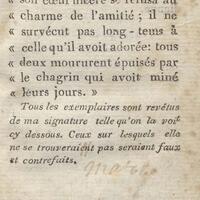 « son cœur sincère se refusa au
« charme de l'amitié ; il ne
« survécut pas long-tems à
« celle qu'il avoit adorée: tous
« deux moururent épuisés par
« le chagrin qui avoit miné
« leurs jours. »
Tous les exemplaires sont revétus
de ma signature telle qu'on la voit
cy dessous. Ceux sur lesquels elle
ne se trouveraient pas seraient faux
et contrefaits.